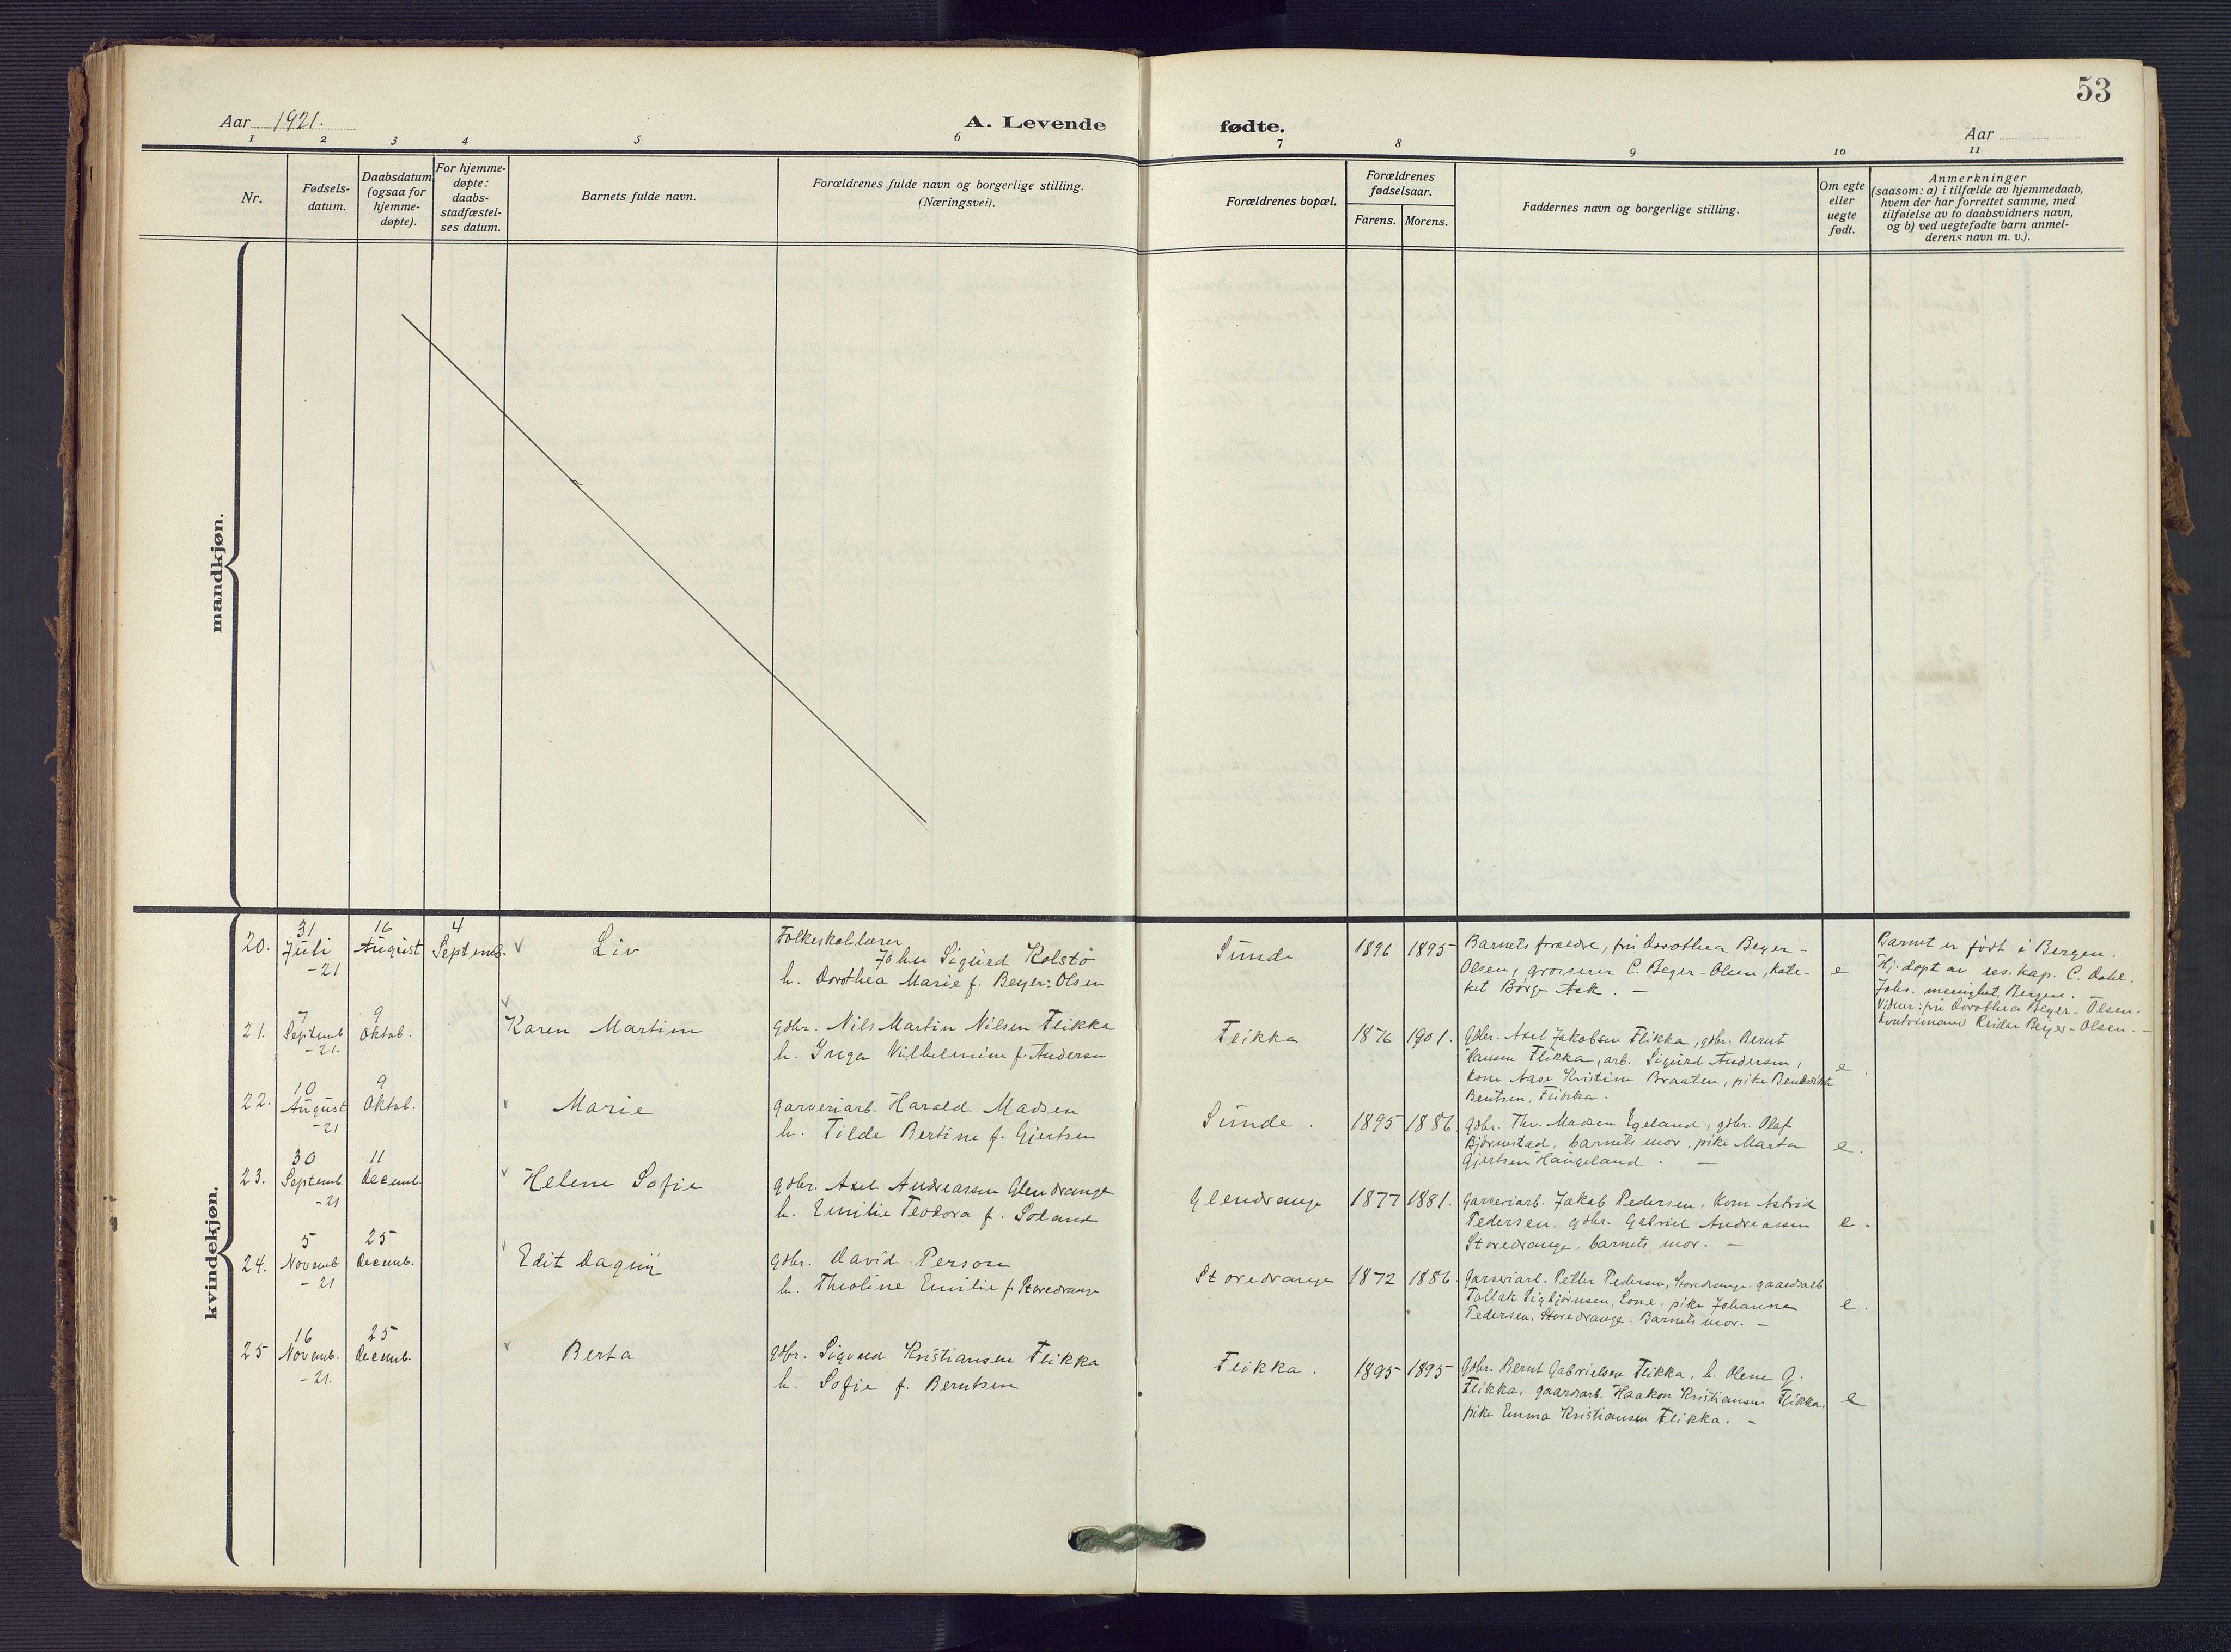 53
Aar 1921.
A. Levende fødte.
Aar
1 2 3 4 5 6 7 8 9 10 11
Nr.
Fødsels-
datum.
Daabsdatum
(ogsaa for
hjemme-
døpte).
For hjemme-
døpte:
daabs-
stadfæstel-
ses datum.
Barnets fulde navn.
Forældrenes fulde navn og borgerlige stilling.
(Næringsvei).
Forældrenes bopæl.
Forældrenes
fødselsaar.
Farens. Morens.
Faddernes navn og borgerlige stilling.
Om egte
eller
uegte
født.
Anmerkninger
(saasom: a) i tilfælde av hjemmedaab,
hvem der har forrettet samme, med
tilføielse av to daabsvidners navn,
og b) ved uegtefødte barn anmel-
derens navn m. v.).
mandkjøn.
kvindekjøn.
20.
31
Juli
-21
16
August
4
Septemb.
Liv
Folkeskolelærer
John Sigurd Kolstø
h. Dorothea Marie f. Beyer-Olsen
Sunde
1896 1895
Barnets forældre, fru Dorothea Beyer-
Olsen, grosserer C. Beyer-Olsen, kate-
ket Børge Ask. -
e
Barnet er født i Bergen.
Hj.døpt av res. kap. C. Dahl,
Johs. menighet, Bergen.
Vidner: fru Dorothea Beyer-Olsen.
Kontormand Reidar Beyer-Olsen. -
21.
7
Septemb
-21.
9
Oktob.
Karen Martine
gdbr. Nils Martin Nilsen Flikka
h. Inga Vilhelmine f. Andersen
Flikka
1876 1901.
Gdbr. Axel Jakobsen Flikka, gdbr. Bernt
Hansen Flikka, arb. Sigurd Andersen,
kone Aase Kristine Braaten, pike Benedikte
Bentsen, Flikka.
e.
22.
10
August
-21
9
Oktob.
Marie
garveriarb. Harald Madsen
h. Tilde Bertine f. Gjertsen
Sunde.
1895 1886
gdbr. Thv. Madsen Egeland, gdbr. Olaf
Bjørnestad, barnets mor, pike Marta
Gjertsen Haugeland. -
e.
23.
30
Septemb.
-21
11
Decemb.
Helene Sofie
gdbr. Axel Andreassen Glendrange
h. Emilie Teodora f. Soland
Glendrange
1877 1881.
Garveriarb. Jakob Pedersen, kone Astrid
Pedersen, gdbr. Gabriel Andreassen
Storedrange, barnets mor. -
e.
24.
5
Novemb
-21
25
Decemb.
Edit Dagny
gdbr. David Person
h. Theoline Emilie f. Storedrange
Storedrange
1872 1886.
Garveriarb. Petter Pedersen, Storedrange, gaardarb
Tollak Sigbjørnsen, Lone, pike Johanne
Pedersen, Storedrange. Barnets mor. -
e.
25
16
Novemb.
-21.
25
Decemb.
Berta
gdbr. Sigurd Kristiansen Flikka
h. Sofie f. Berntsen
Flikka.
1895 1895
Gdbr. Bernt Gabrielsen Flikka, h. Olene G.
Flikka, gaardarb. Haakon Kristiansen Flikka.
pike Emma Kristiansen Flikka. -
e